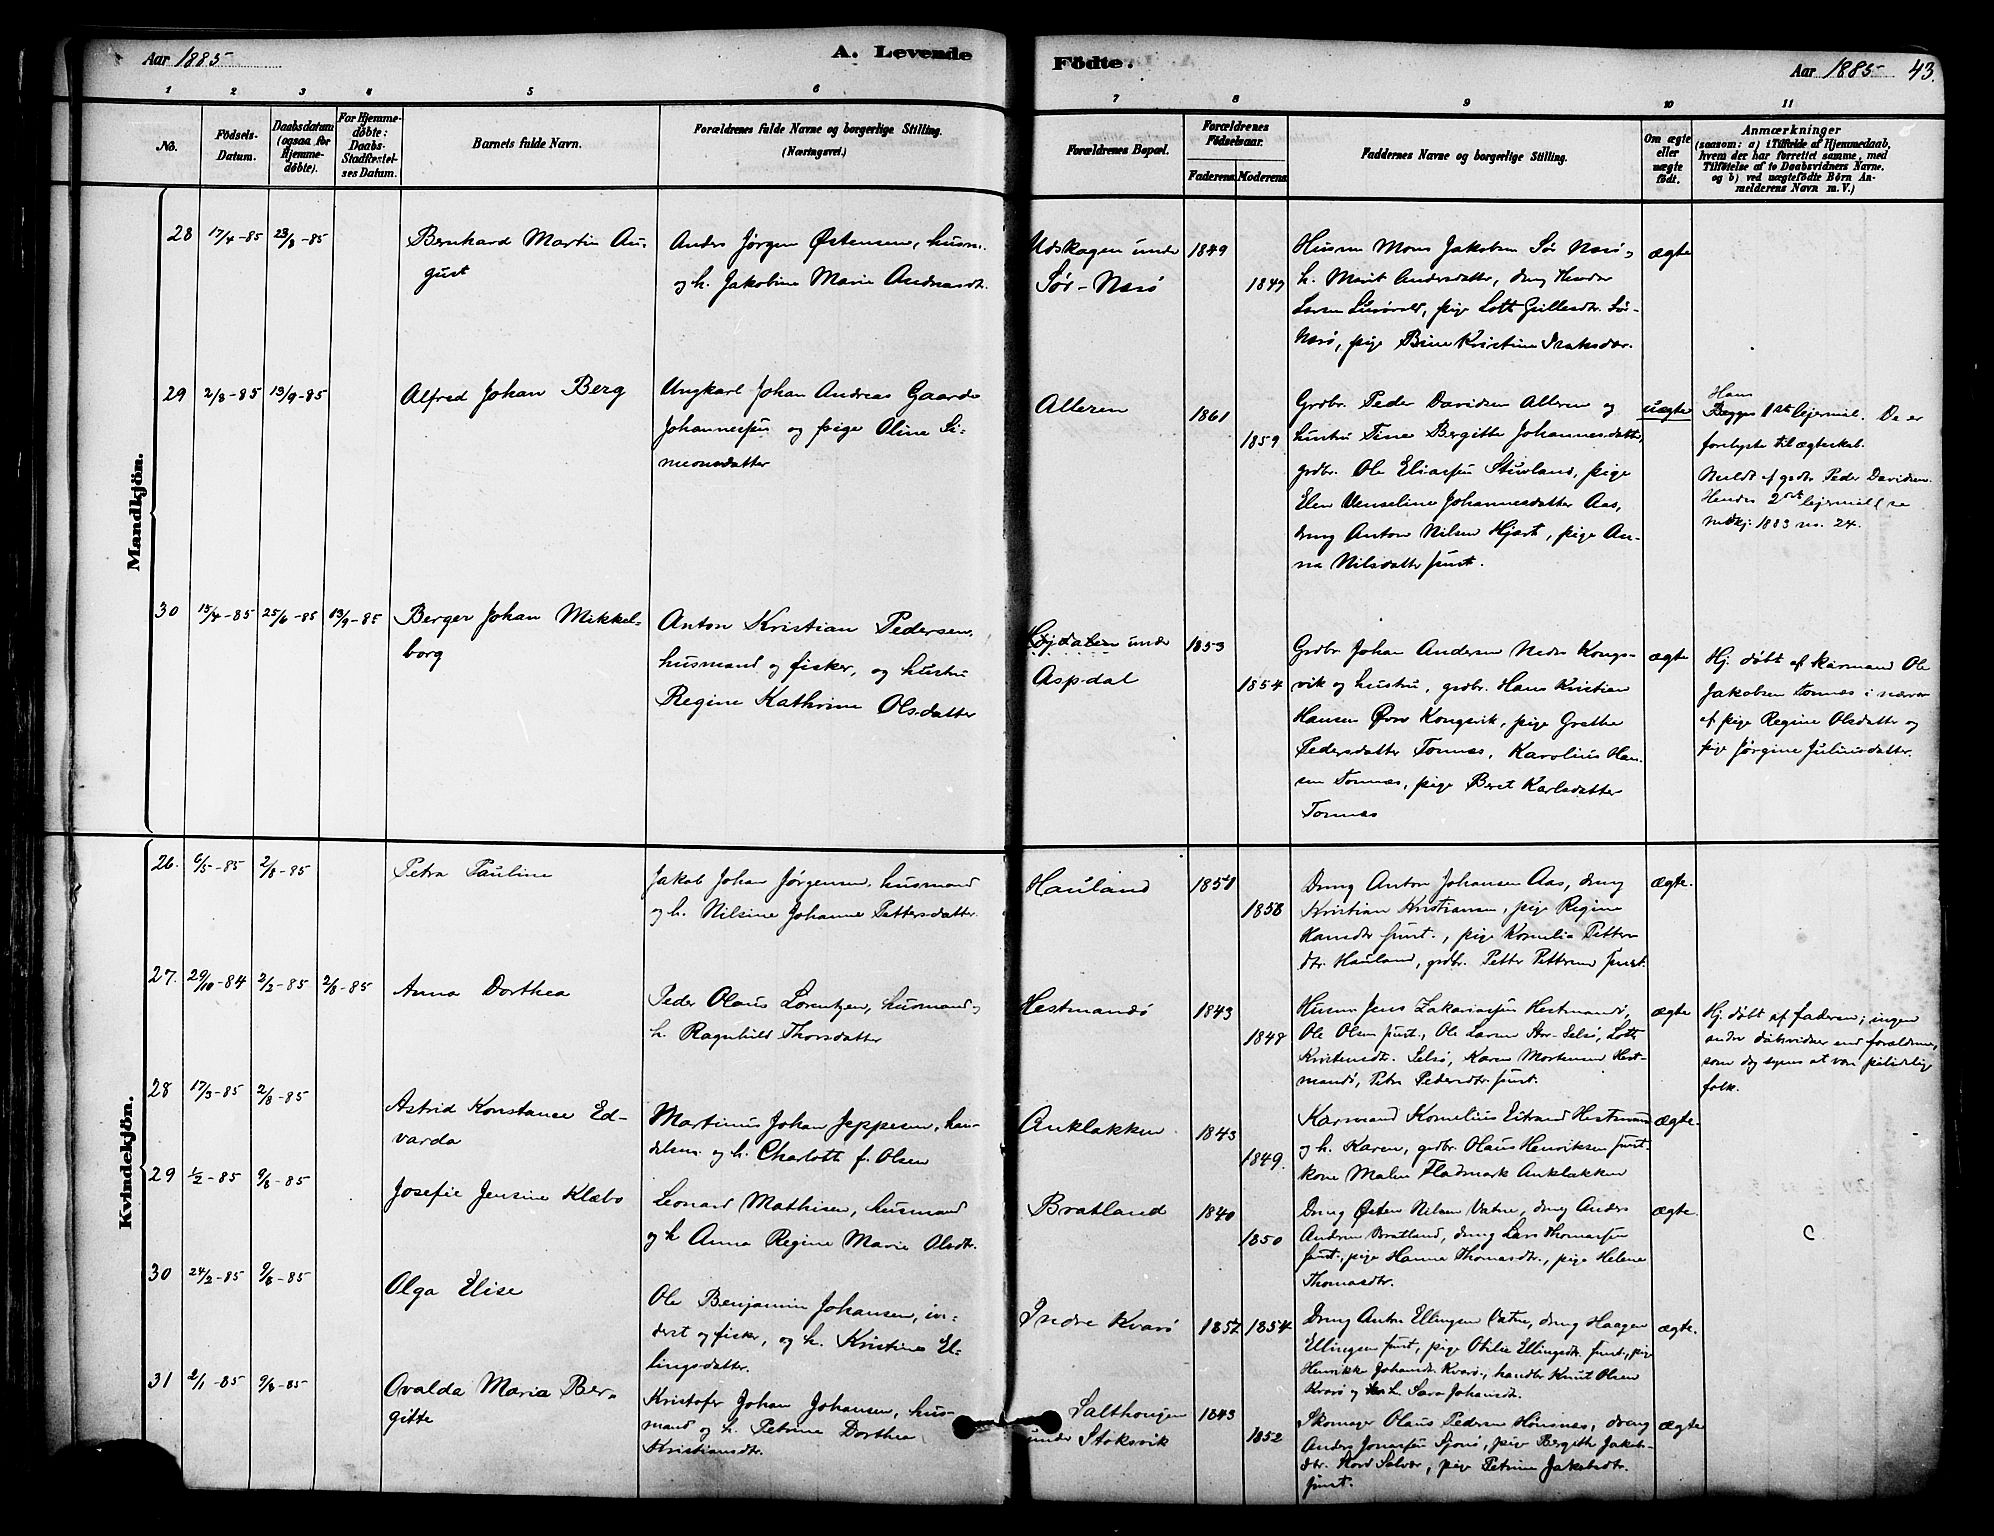 Aar 1885
A. Levende
Födte.
Aar 1885 43.
1 2 3 4 5 6 7 8 9 10 11
No.
Födsels-
Datum.
Daabsdatum
(ogsaa for
Hjemme-
döbte).
For Hjemme-
döbte:
Daabs-
Stadfæstel-
ses Datum.
Barnets fulde Navn.
Forældrenes fulde Navne og borgerlige Stilling.
(Næringsvei.)
Forældrenes Bopæl.
Forældrenes
Födselsaar.
Faderens. Moderens.
Faddernes Navne og borgerlige Stilling.
Om ægte
eller
uægte
født.
Anmærkninger
(saasom: a) i Tilfælde af Hjemmedaab,
hvem der har forrettet samme, med
Tilføielse af to Daabsvidners Navne,
og b) ved uægtefødte Børn An-
melderens Navn m. V.)
Mandkjön.
28 17/4-85 23/8-85
Bernhard Martin Au-
gust
Anders Jørgen Østensen, husm.
og h. Jakobine Marie Andreasdt.
Udskagen under
Sør-Nesö
1849
1849
Husm Mons Jakobsen Sør Nesö,
h. Marit Andersdatter, dreng
Larsen
Nesö, pige Bine Kristine Isaksdtr.
ægte
29 2/8-85 13/9-85
Alfred Johan Berg
Ungkarl Johan Andreas Gaarde
Johannessen og pige Oline Si-
meonsdatter
Alteren
1861
1859
Grdbr. Peder Davidsen Alteren og
hustru Tine Bergitte Johannesdatter,
grdbr. Ole Eliassen Stuvland, pige
Elen Venseline Johannesdatter Aas,
dreng Anton Nilsen Hjart, pige An-
na Nilsdatter smst.
uægte
Hans
Begges 1ste lejermaal. De er
forelyste til ægteskab.
Meldt af grdbr Peder Davidsen.
Hendes 2det lejermaal (se
mdkj. 1883 no. 24.
30 15/4-85 25/6-85 13/9-85
Berger Johan Mikkel-
borg
Anton Kristian Pedersen,
husmand og fisker, og hustru
Regine Kathrine Olsdatter
Højdalen under
Aspdal
1853
1854
Grdbr Johan Andersen Nedre Kongs-
vik og hustru, grdbr. Hans Kristian
Hansen Øvre Kongsvik, pige Grethe
Pedersdatter Tonnes, Karolius Han-
sen Tonnes, pige Beret Karlsdatter
Tonnes
ægte
Hj. døbt af kaarmand Ole
Jakobsen Tonnes i nærvær
af pige Regine Olsdatter og
pige Jørgine Juliusdatter.
Kvindekjön.
26. 6/5-85 2/8-85
Petra Pauline
Jakob Johan Jørgensen, husmand
og h. Nilsine Johanne Pettersdatter.
Hauland
1851
1858
Dreng Anton Johansen Aas, dreng
Kristian Kristiansen, pige Regine
Hansdtr smst., pige Kornelia Petters
dtr. Hauland, grdbr. Petter Pettersen smst.
ægte.
27. 29/10-84 2/2-85 2/8-85
Anna Dorthea
Peder Olaus Lorentzen, husmand og
h. Ragnhild Thorsdatter
Hestmandö
1843
1848
Husm Jens Zakariassen Hestmandö,
Ole Olsen smst., Ole Larsen Selsö, Lotte
Kristensdt. Selsö, Karen Mortensen Hest-
mandö, Petra Pedersdtr. smst.
ægte
Hj. døbt af faderen; ingen
andre daabsvidner end forældrene,
som dog synes at være pålidelige
folk.
28 17/3-85 2/8-85
Astrid Konstance Ed-
varda
Martinus Johan Jeppesen, han-
delsm. og h. Charlotte f. Olsen
Anklakken
1843
1849.
Kaarmand Kornelius Hestmand
og h. Karen, grdbr. Olaus Henriksen smst
kone Malen Fladmark Anklakken
ægte.
29 1/2-85 9/8-85
Josefie Jensine Klæbo
Leonard Mathisen, husmand
og h Anna Regine Marie Olsdt.
Bratland
1840
1850
Dreng Østen Nilsen Vatne, dreng Anders
Andersen Bratland, dreng Lars Thomassen
smst., pige Hanna Thomasdtr., pige Helene
Thomasdtr.
ægte.
C
30 24/2-85 9/8-85
Olga Elise
Ole Benjamin Johansen, in-
derst og fisker, og h. Kristine El-
lingsdatter.
Indre Kvarö
1852 1854
Dreng Anton Ellingsen Vatne, dreng Haagen
Ellingsen smst, pige Otilie Ellingsdt. smst., pige
Henrikke Johansdt. Kvarö, handler Knut Olsen
Kvarö og h. Sara Johansdt.
ægte.
31 2/1-85 9/8-85
Ovalda Maria Ber-
gitte
Kristofer Johan Johansen, hus-
mand og h. Petrine Dorthea
Kristiansdt.
Salthougen
under Stoksvik
1843
1852
Skomager Olaus Pedersen Hønsnes, dreng
Anders Jonassen Sjonö, pige Bergitte Jakobs-
dtr. Nord Selvær, pige Petrine Jakobsdtr.
smst.
ægte